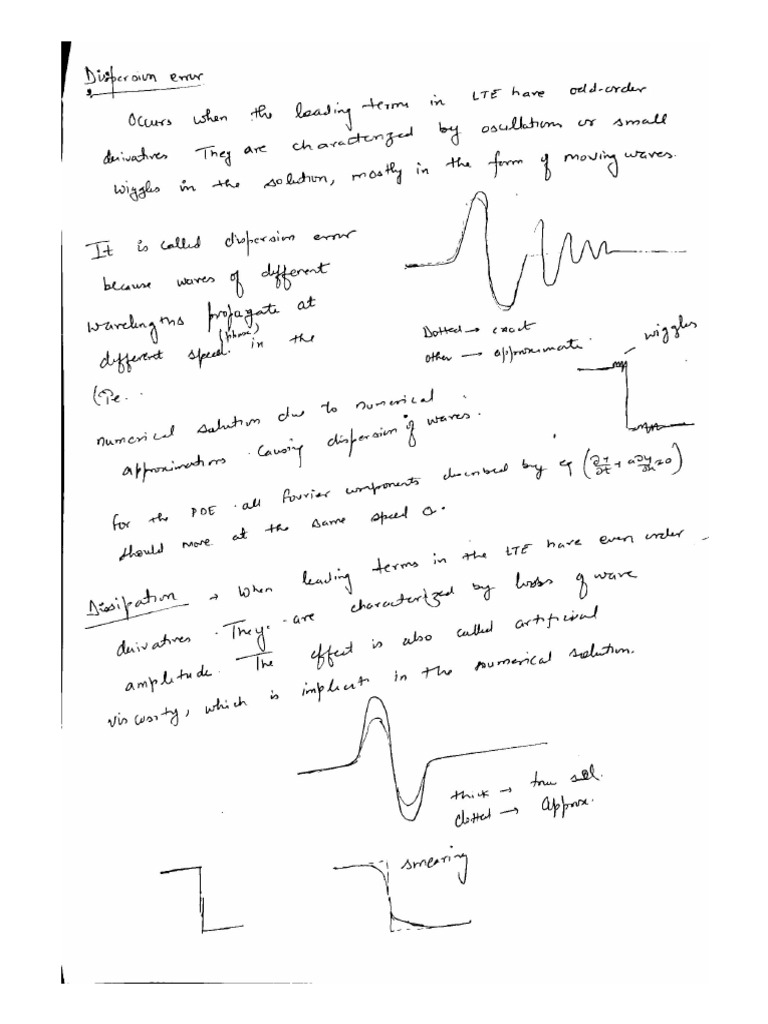 Dispersion error
Occurs when the leading terms in LTE have odd-order
derivatives They are characterized by oscillations or small
wiggles in the solution, mostly in the form of moving waves.
It is called dispersion error
because waves of different
wavelengths propagate at
(phase)
different speed in the
(Pe..
numerical solution due to numerical
approximations. Causing dispersion of waves.
Dotted → exact
other → approximate.
wiggles
for the PDE all fourier components described by eq
should move at the same speed a.
Dissipation → When leading terms in the LTE have even order
derivatives. They are characterized by loss of wave
amplitude. The effect is also called artificial
viscosity, which is implicit in the numerical solution.
thick → true sol.
dotted → Approx.
smearing